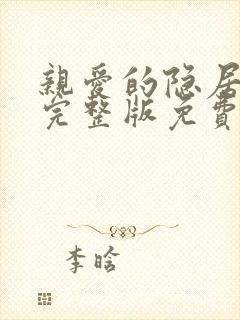 親愛的隐居
完整版免費
李晗